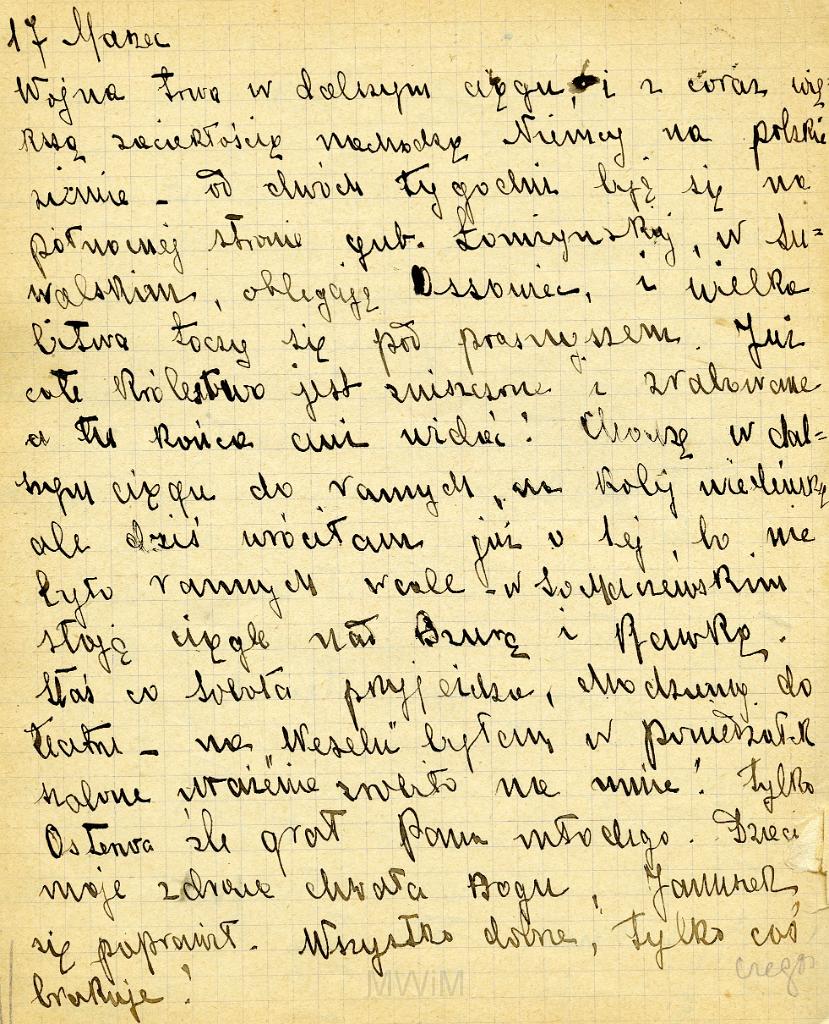 17 Marzec
Wojna trwa w dalszym ciągu, i z coraz wię=
kszą zaciekłością nachodzą Niemcy na polskie
ziemie – od dwóch tygodni biją się na
północnej stronie gub. Łomżyńskiej, w Su=
walskim, oblegają Ossowiec, i wielka
bitwa toczy się pod Prasnyszem. Już
całe Królestwo jest zniszczone i zrabowane
a tu końca ani widać! Chodzę w dal=
szym ciągu do rannych „na kolej wiedeńską
ale dziś wróciłam już o 1ej, bo nie
było rannych wcale – w Sochaczewskim
stoją ciągle nad Bzurą i Rawką.
Staś co sobota przyjeżdża, chodzimy do
teatru – na „Weselu” byłam w poniedziałek
szalone wrażenie zrobiło na mnie! Tylko
Osterwa źle grał Pana młodego. Dzieci
moje zdrowe chwała Bogu, Januszek
się poprawił. Wszystko dobrze, tylko coś
czegoś
brakuje!
MWiM